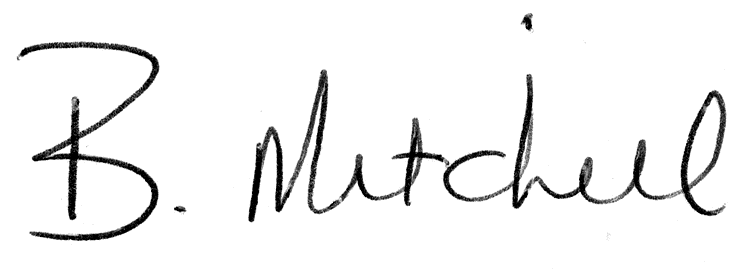 B. Mitchell